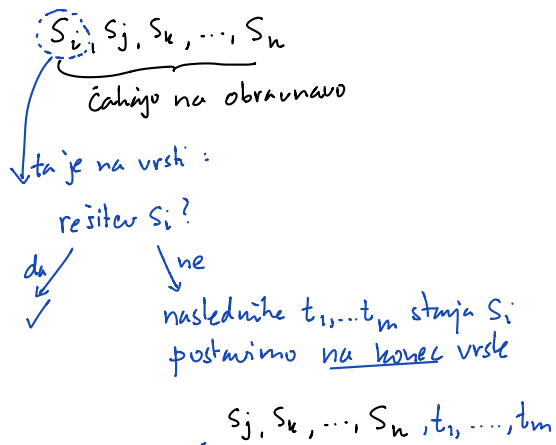 Si, Sj, Sk, ..., Sn
čakajo na obravnavo
ta je na vrsti :
rešitev Si?
da
ne
naslednike t1,...tm stanja Si
postavimo na konec vrste
Sj, Sk, ..., Sn, t1, ...., tm